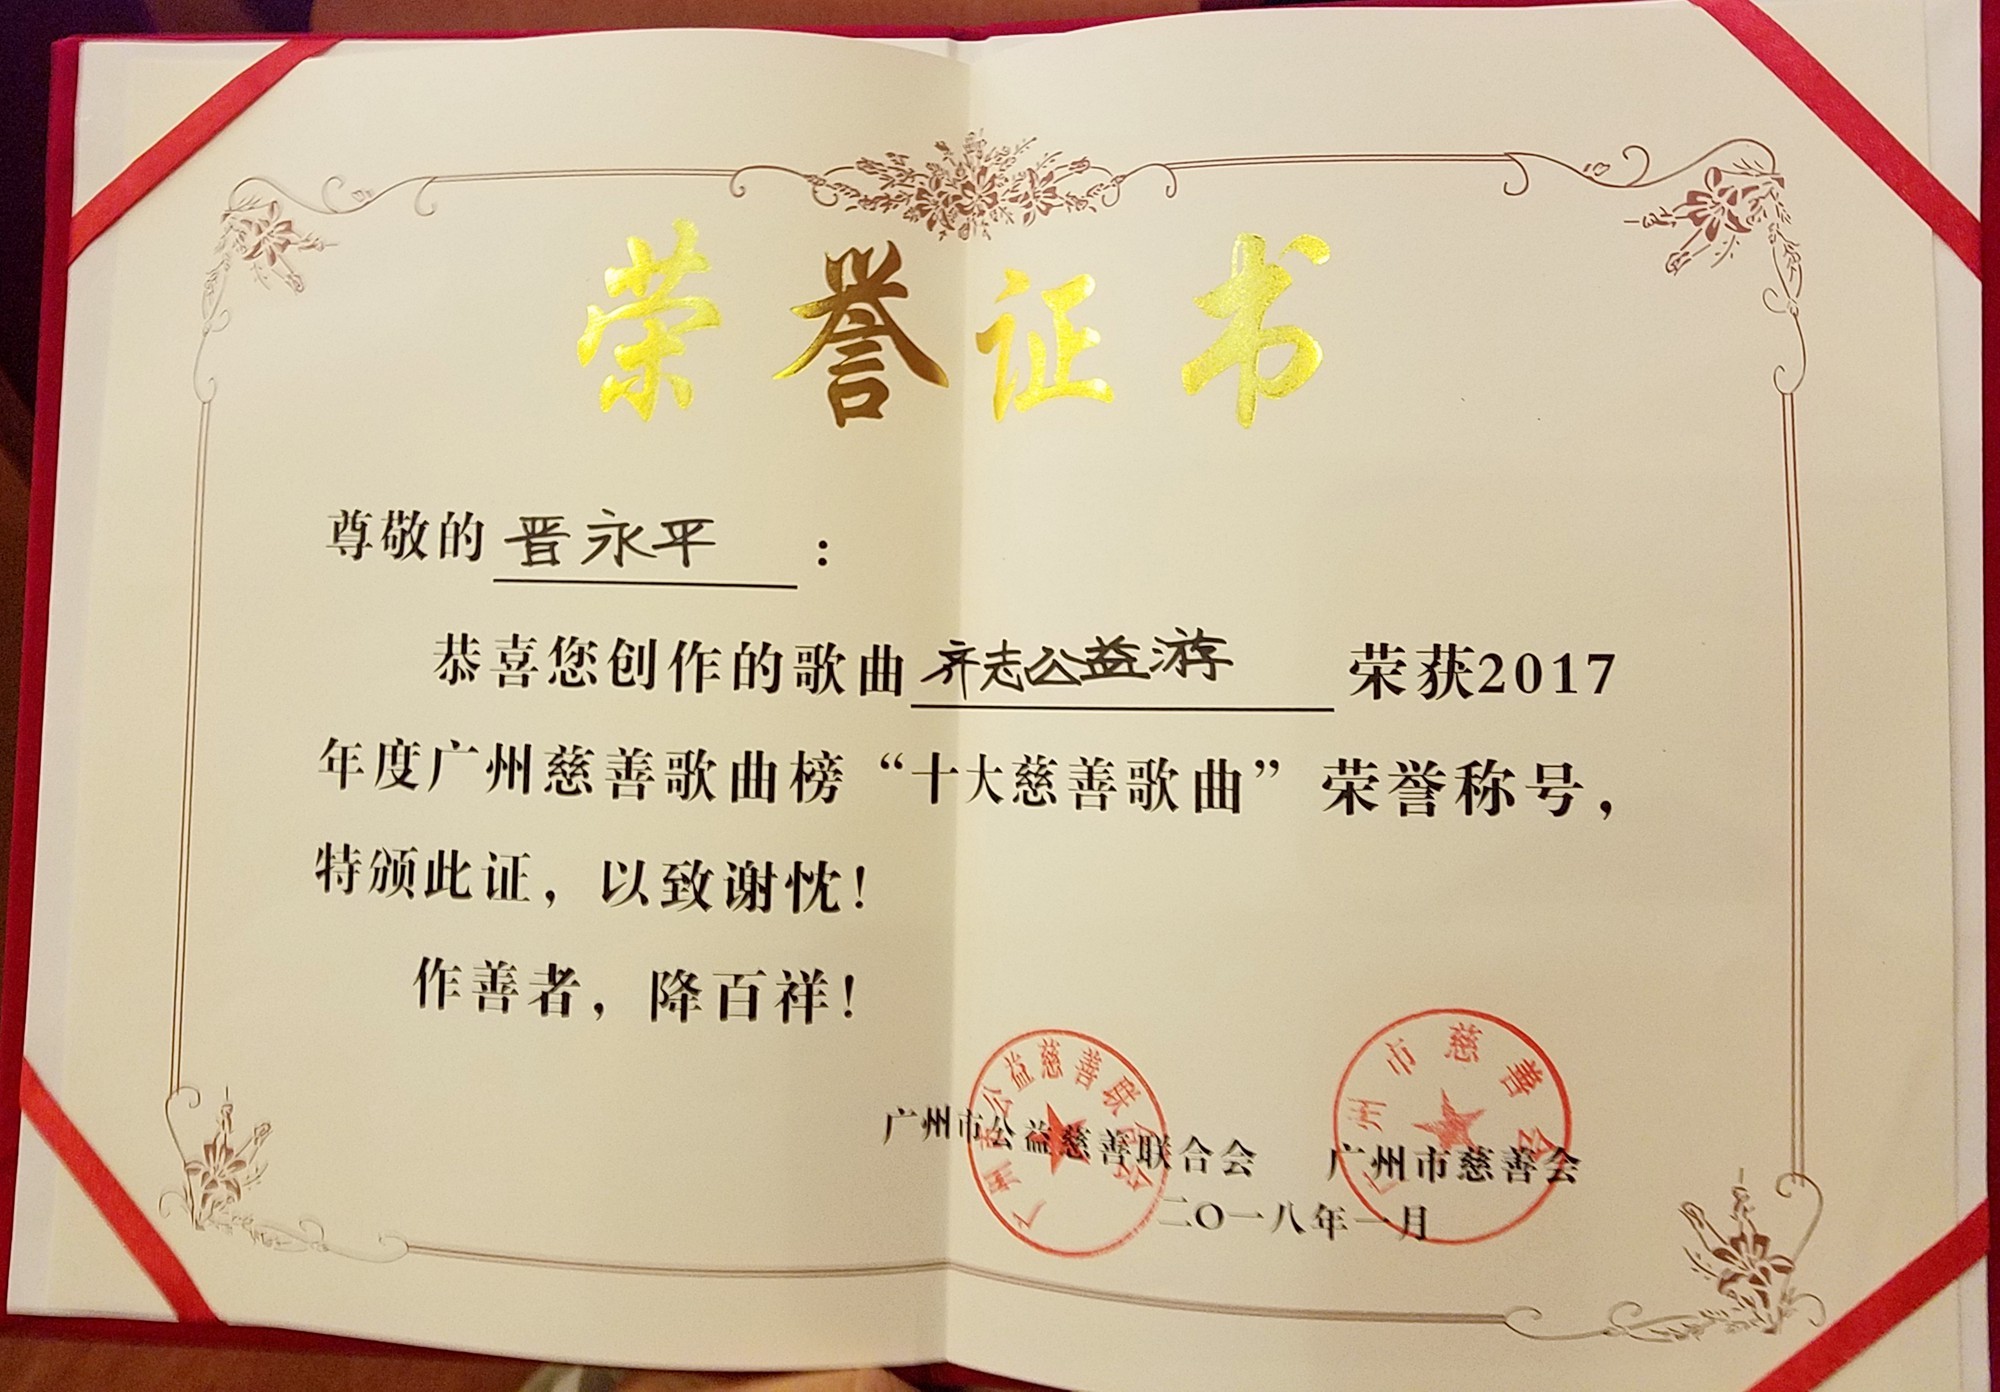 荣誉证书
尊敬的 晋永平 ：
恭喜您创作的歌曲 齐志公益游 荣获2017
年度广州慈善歌曲榜“十大慈善歌曲”荣誉称号，
特颁此证，以致谢忱！
作善者，降百祥！
广州市公益慈善联合会
广州市慈善会
广州市公益慈善联合会 广州市慈善会
二〇一八年一月